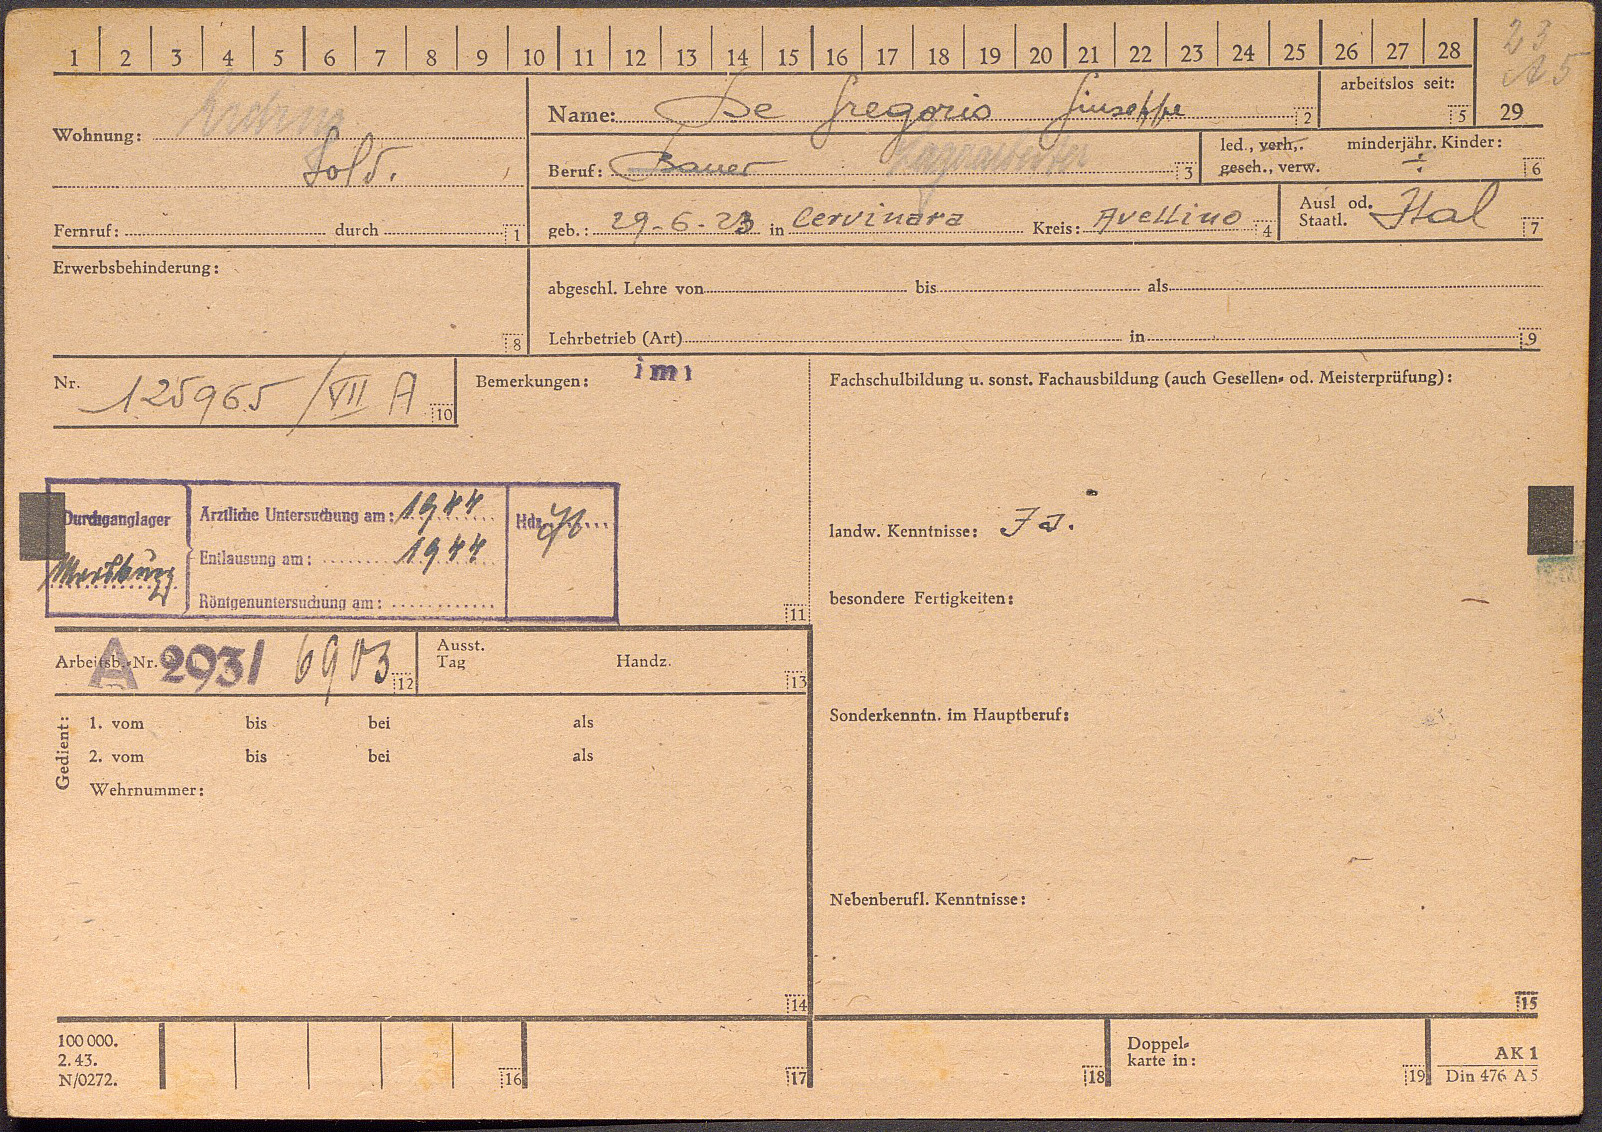 1 2 3 4 5 6 7 8 9 10 11 12 13 14 15 16 17 18 19 20 21 22 23 24 25 26 27 28
23
A5
29
Wohnung:
Sold.
Fernruf: durch 1
Name: De Gregorio Giuseppe 2
arbeitslos seit: 5
Beruf: Bauer 3
led., verh., minderjähr. Kinder:
gesch., verw. ÷ 6
geb.: 29-6-23 in Cervinara Kreis: Avellino 4
Ausl od.
Staatl. Ital 7
Erwerbsbehinderung:
8
abgeschl. Lehre von bis als
Lehrbetrieb (Art) in 9
Nr. 125965/VII A 10
Bemerkungen: imi
Durchganglager
Ärztliche Untersuchung am: 1944
Entlausung am: 1944
Röntgenuntersuchung am:
Hdz.
11
Arbeitsb.-Nr. A 293/ 6903 12
Ausst.
Tag Handz. 13
Gedient:
1. vom bis bei als
2. vom bis bei als
Wehrnummer:
14
Fachschulbildung u. sonst. Fachausbildung (auch Gesellen- od. Meisterprüfung):
landw. Kenntnisse: Ja.
besondere Fertigkeiten: —
Sonderkenntn. im Hauptberuf:
Nebenberufl. Kenntnisse:
15
100 000.
2. 43.
N/0272.
16 17 18
Doppel-
karte in: 19
AK 1
Din 476 A 5